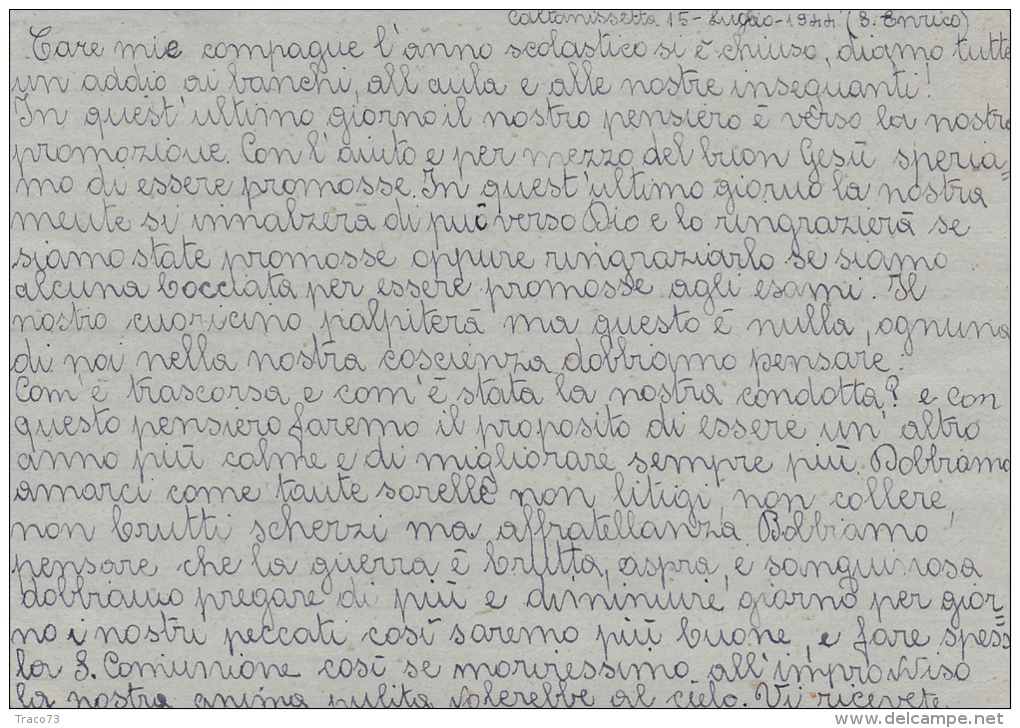 Caltanissetta 15-Luglio-1944 (S. Enrico)
Care mie compagne l'anno scolastico si è chiuso, diamo tutte
un addio ai banchi, all'aula e alle nostre insegnanti!
In quest'ultimo giorno il nostro pensiero è verso la nostra
promozione. Con l'aiuto e per mezzo del buon Gesù speria=
mo di essere promosse. In quest'ultimo giorno la nostra
mente si innalzerà di più verso Dio e lo ringrazierà se
siamo state promosse oppure ringraziarlo se siamo
alcuna bocciata per essere promosse agli esami. Il
nostro cuoricino palpiterà ma questo è nulla, ognuna
di noi nella nostra coscienza dobbiamo pensare.
Com'è trascorsa e com'è stata la nostra condotta? e con
questo pensiero faremo il proposito di essere un'altro
anno più calme e di migliorare sempre più. Dobbiamo
amarci come tante sorelle non litigi, non collere,
non brutti scherzi ma affratellanza. Dobbiamo
pensare che la guerra è brutta, aspra, e sanguinosa
dobbiamo pregare di più e diminuire giorno per gior=
no i nostri peccati così saremo più buone, e fare spess
la S. Comunione così se morressimo all'improvviso
la nostra anima pulita volerebbe al cielo. Vi ricevete
Traco73
www.delcampe.net